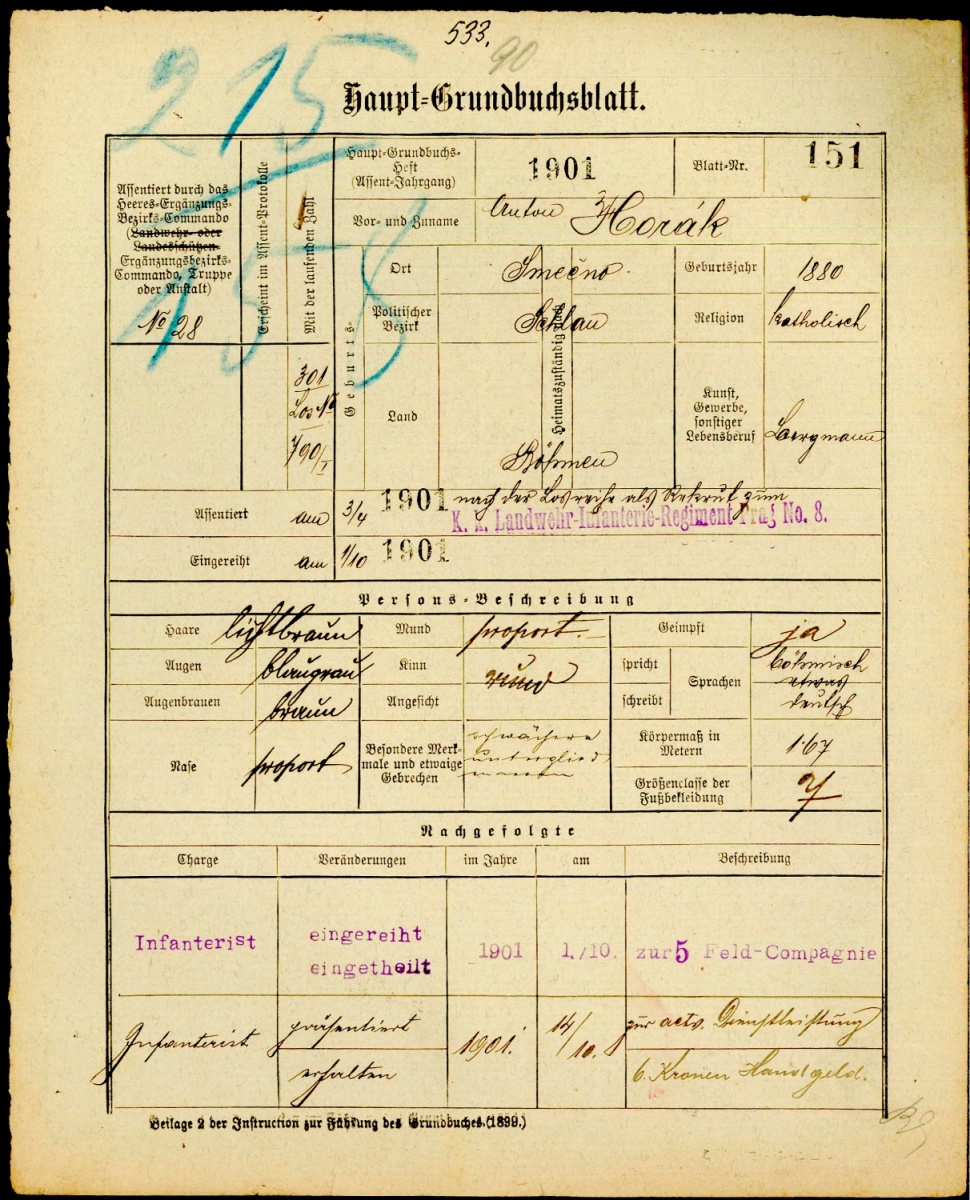 533.
90
215
158
Haupt-Grundbuchsblatt.
Assentiert durch das
Heeres-Ergänzungs-
Bezirks-Commando
(Landwehr- oder
Landesschützen-
Ergänzungsbezirks-
Commando, Truppe
oder Anstalt)
No 28
Erscheint im Assent-Protokolle
Mit der laufenden Zahl
301
Los No
790/I
Haupt-Grundbuchs-
Heft
(Assent-Jahrgang)
1901
Blatt-Nr.
151
Vor- und Zuname
Anton Horák
Geburts-
Ort
Smečno
Geburtsjahr
1880
Politischer
Bezirk
Schlan
Heimatszuständig
Religion
katholisch
Land
Böhmen
Kunst,
Gewerbe,
sonstiger
Lebensberuf
Bergmann
Assentiert am 3/4 1901 nach der Losreihe als Rekrut zum
K. k. Landwehr-Infanterie-Regiment Prag No. 8.
Eingereiht am 1/10 1901
Persons-Beschreibung
Haare lichtbraun
Mund proport.
Geimpft ja
Augen blaugrau
Kinn rund
spricht
schreibt
Sprachen
böhmisch
etwas
deutsch
Augenbrauen braun
Angesicht
Nase proport
Besondere Merk-
male und etwaige
Gebrechen
schwächere
Körpermaß in
Metern
1·67
Größenclasse der
Fußbekleidung
7
Nachgefolgte
Charge Veränderungen im Jahre am Beschreibung
Infanterist eingereiht
eingetheilt 1901 1./10. zur 5 Feld-Compagnie
Infanterist präsentiert 1901. 14/10. zur actv. Dienstleistung
erhalten 6 Kronen Handgeld.
Beilage 2 der Instruction zur Führung des Grundbuches.(1899.)